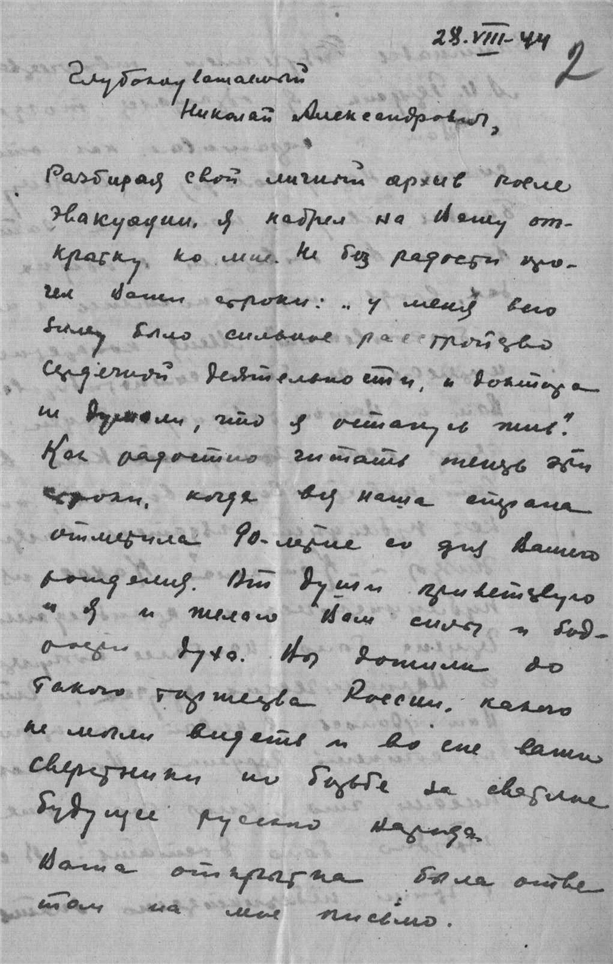 28.VIII-44
2
Глубокоуважаемый
Николай Александрович,
Разбирая свой личный архив после
эвакуации, я набрел на Вашу от-
крытку ко мне. Не без радости про-
чел Ваши строки: „у меня
было сильное расстройство
сердечной деятельности, и доктора
не думали, что я останусь жив".
Как радостно читать теперь эти
строки, когда вся наша страна
отметила 90-летие со дня Вашего
рождения. От души приветствую
и я и желаю Вам силы и бод-
рости духа. Вы дожили до
такого торжества России, какого
не могли видеть и во сне ваши
сверстники по борьбе за светлое
будущее русского народа.
Ваша открытка была отве-
том на мое письмо.